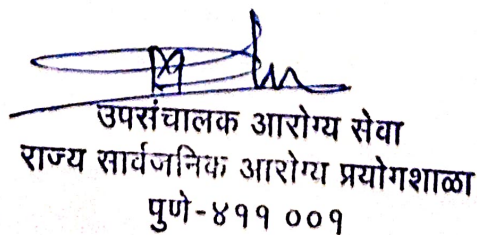 उपसंचालक आरोग्य सेवा
राज्य सार्वजनिक आरोग्य प्रयोगशाळा
पुणे-४११ ००१